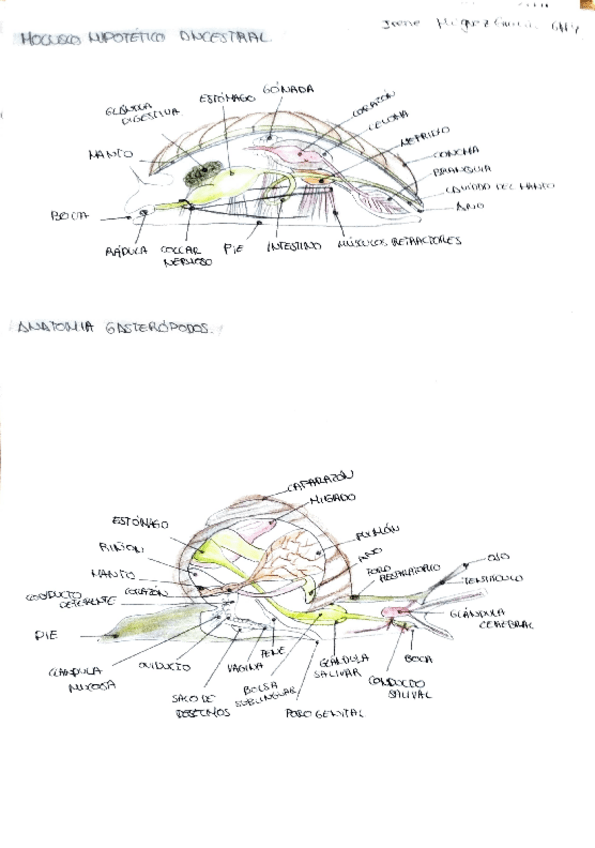 MOLUSCO HIPOTÉTICO ANCESTRAL.
Irene
GLÁNDULA
DIGESTIVA
ESTÓMAGO
GÓNADA
CORAZÓN
CELOMA
NEFRIDIO
CONCHA
BRANQUIA
CAVIDAD DEL MANTO
ANO
MANTO
BOCA
RÁDULA
COLLAR
NERVIOSO
PIE
INTESTINO
MÚSCULOS RETRACTORES
ANATOMIA GASTERÓPODOS.
CAPARAZÓN
HIGADO
ESTÓMAGO
PULMÓN
RIÑON
ANO
PORO
RESPIRATORIO
OJO
MANTO
TENTACULO
CONDUCTO
DEFERENTE
CORAZÓN
GLÁNDULA
CEREBRAL
PIE
GLANDULA
MUCOSA
OVIDUCTO
VAGINA
PENE
GLÁNDULA
SALIVAR
BOCA
SACO DE
BOLSA
SUBLINGUAL
CONDUCTO
SALIVAL
PORO GENITAL